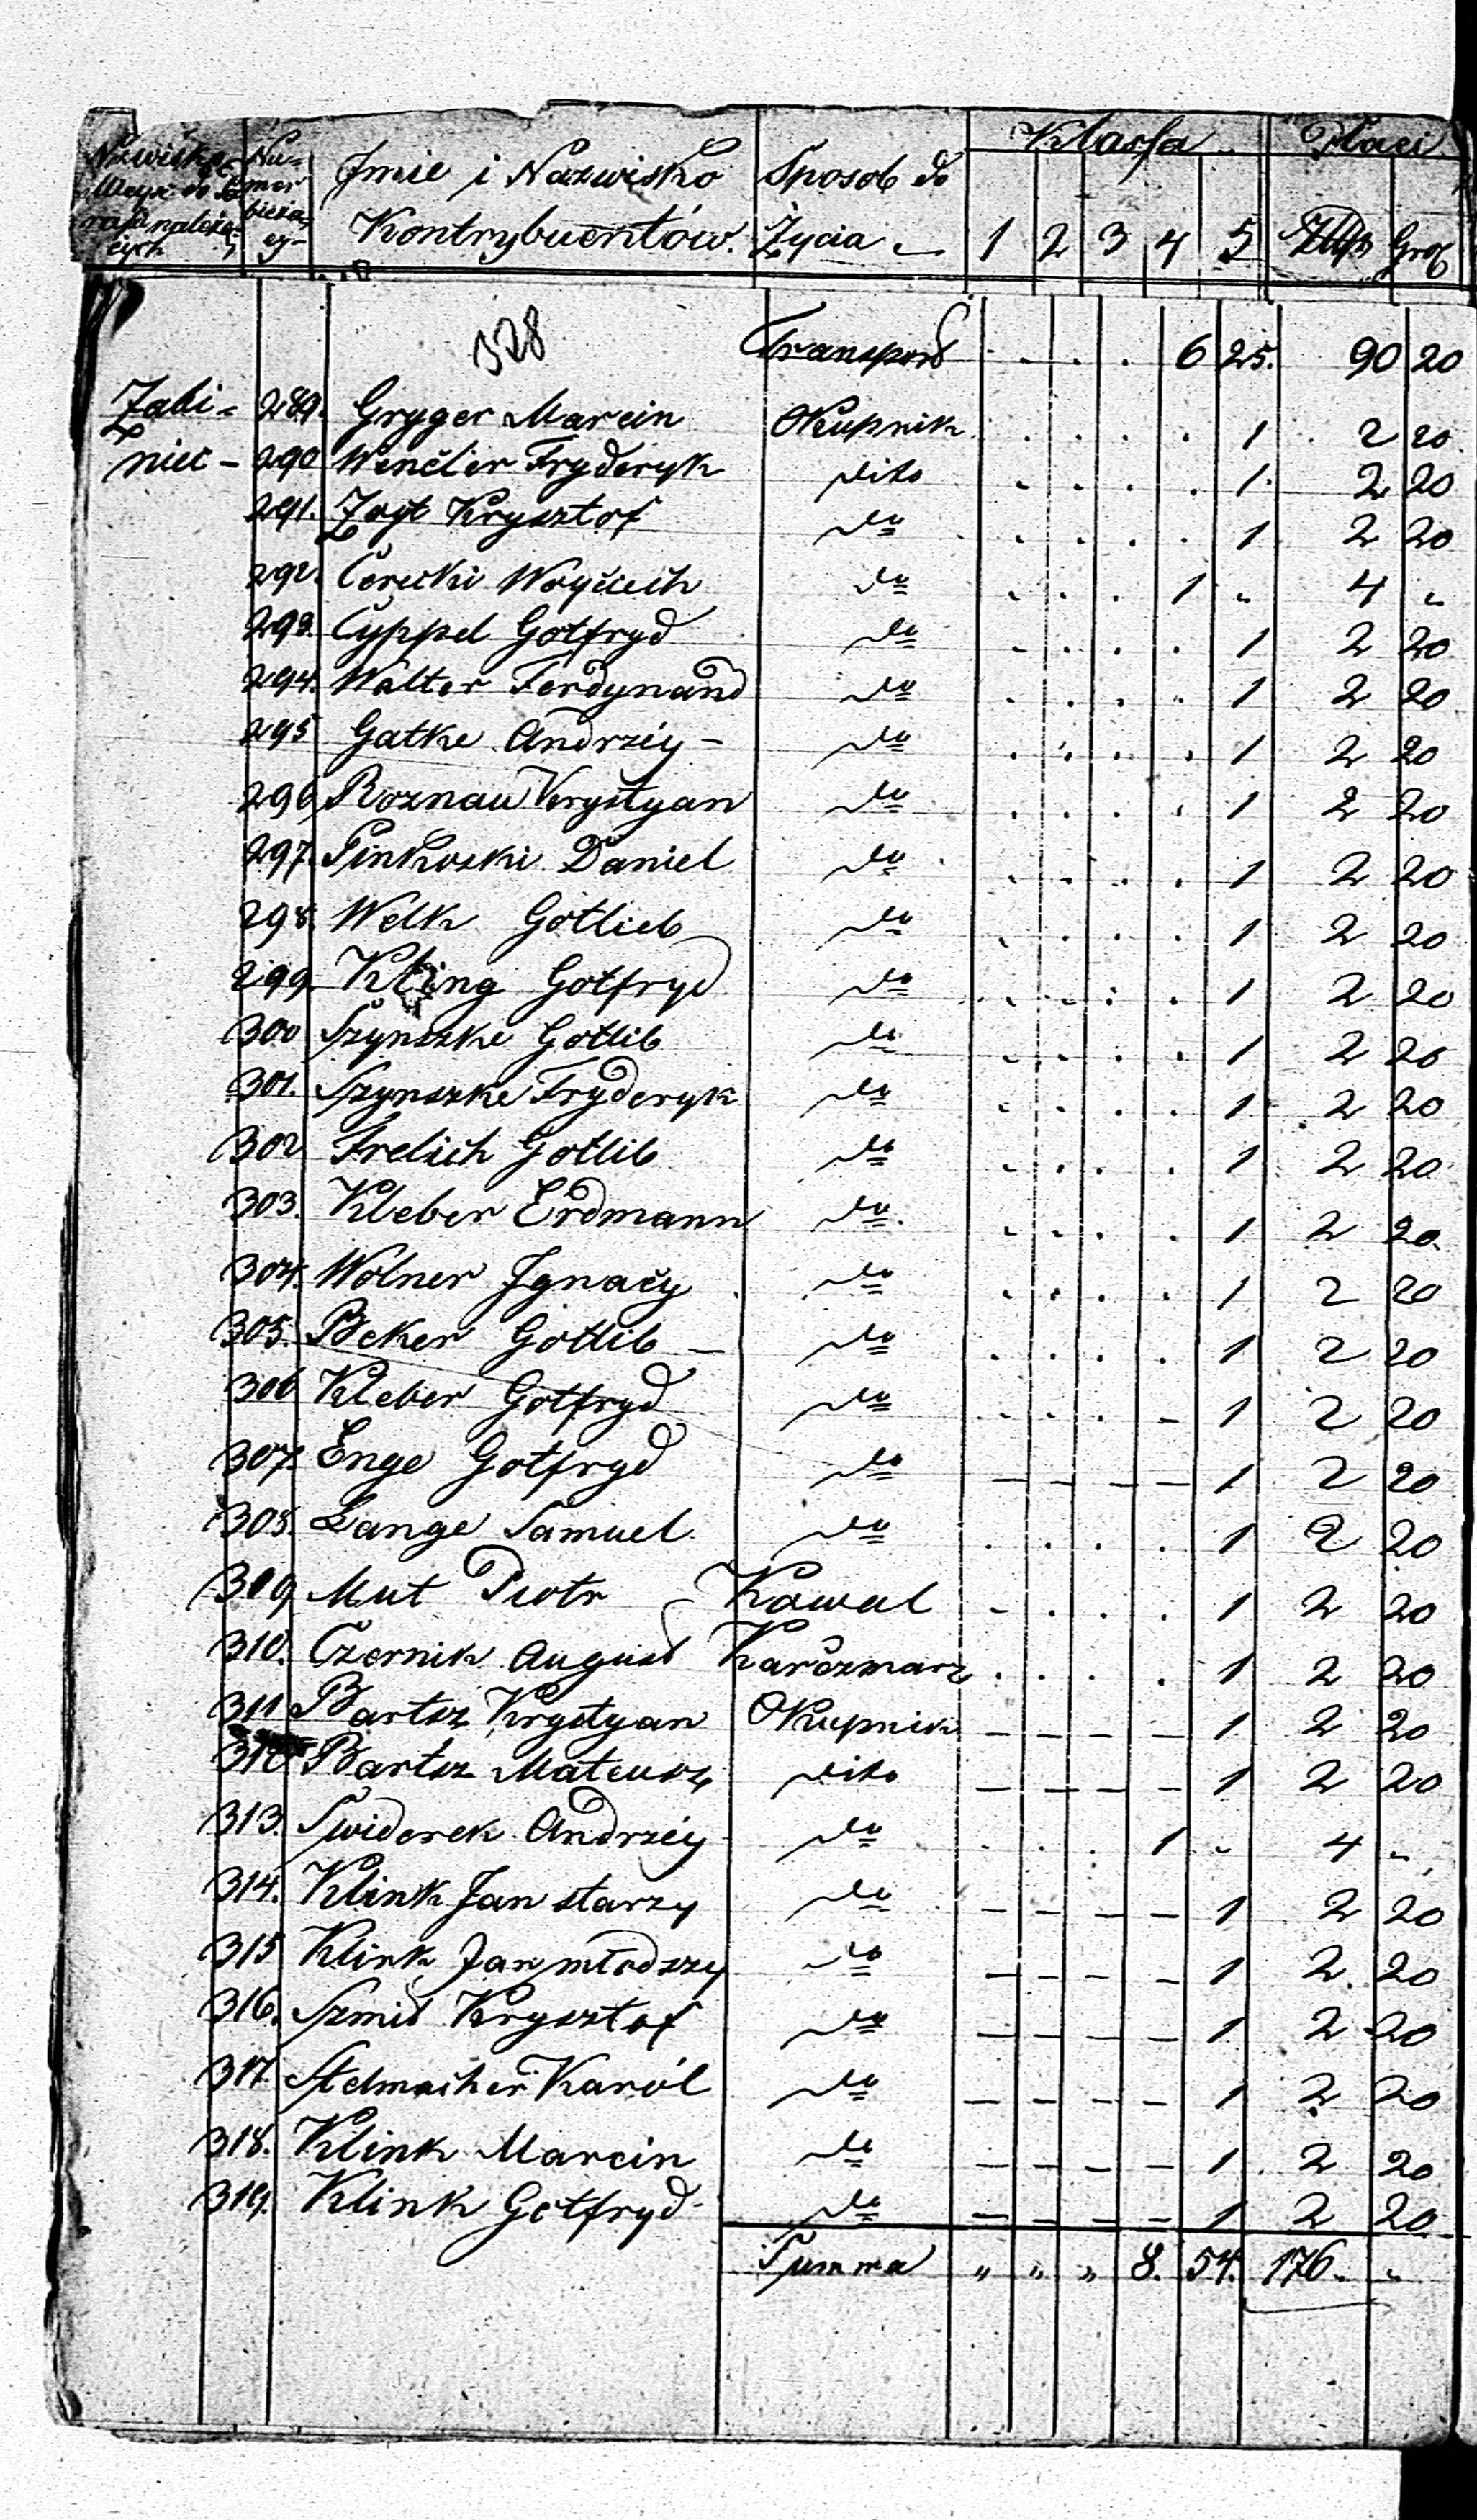 Klassa Płaci
Nazwiska Nu= Jmie i Nazwisko Sposob do
mer
należą= bieżą= Kontrybuentów. Życia 1 2 3 4 5 Złłp Gro
cych cy
328 Transport . . . . 6 25. 90 20
Zabi= 289. Gryger Marcin Okupnik . . . . 1 2 20
niec – 290 Wencler Fryderyk dito . . . . 1 2 20
291. Zogt Krysztof do . . . . 1 2 20
292. Cerecki Woyciech do . . . 1 " 4 "
293. Cyppel Gotfryd do . . . . 1 2 20
294. Walter Ferdynand do . . . . 1 2 20
295 Gatke Andrzéy – do . . . . 1 2 20
296 Roznau Krystyan do . . . . 1 2 20
297. Pinkoski Daniel do . . . . 1 2 20
298. Welk Gotlieb do . . . . 1 2 20
299. Kling Gotfryd do . . . . 1 2 20
300 Szynszke Gotlib do . . . . 1 2 20
301. Szynszke Fryderyk do . . . . 1 2 20
302 Frelich Gotlib do . . . . 1 2 20
303. Kleber Erdmann do . . . . 1 2 20
304. Wolner Jgnacy do . . . . 1 2 20
305. Beker Gotlib – do . . . . 1 2 20
306 Kleber Gotfryd do . . . – 1 2 20
307. Enge Gotfryd do – – – – 1 2 20
308. Lange Samuel do . . . . 1 2 20
309 Mut Piotr Kowal – . . . 1 2 20
310. Czernik August Karczmarz . . . . 1 2 20
311 Bartsz Krystyan Okupnik – – – – 1 2 20
310 Bartsz Mateusz dito – – – – 1 2 20
313. Swiderek Andrzéy do . . . 1 " 4 "
314. Klink Jan starzy do – – – – 1 2 20
315 Klink Jan młodszy do – – – – 1 2 20
316. Szmid Krysztof do – – – – 1 2 20
317. Stelmacher Karól do – – – – 1 2 20
318. Klink Marcin do – – – – 1 2 20
319. Klink Gotfryd do – – – – 1 2 20
Summa " " " 8. 54. 176. "